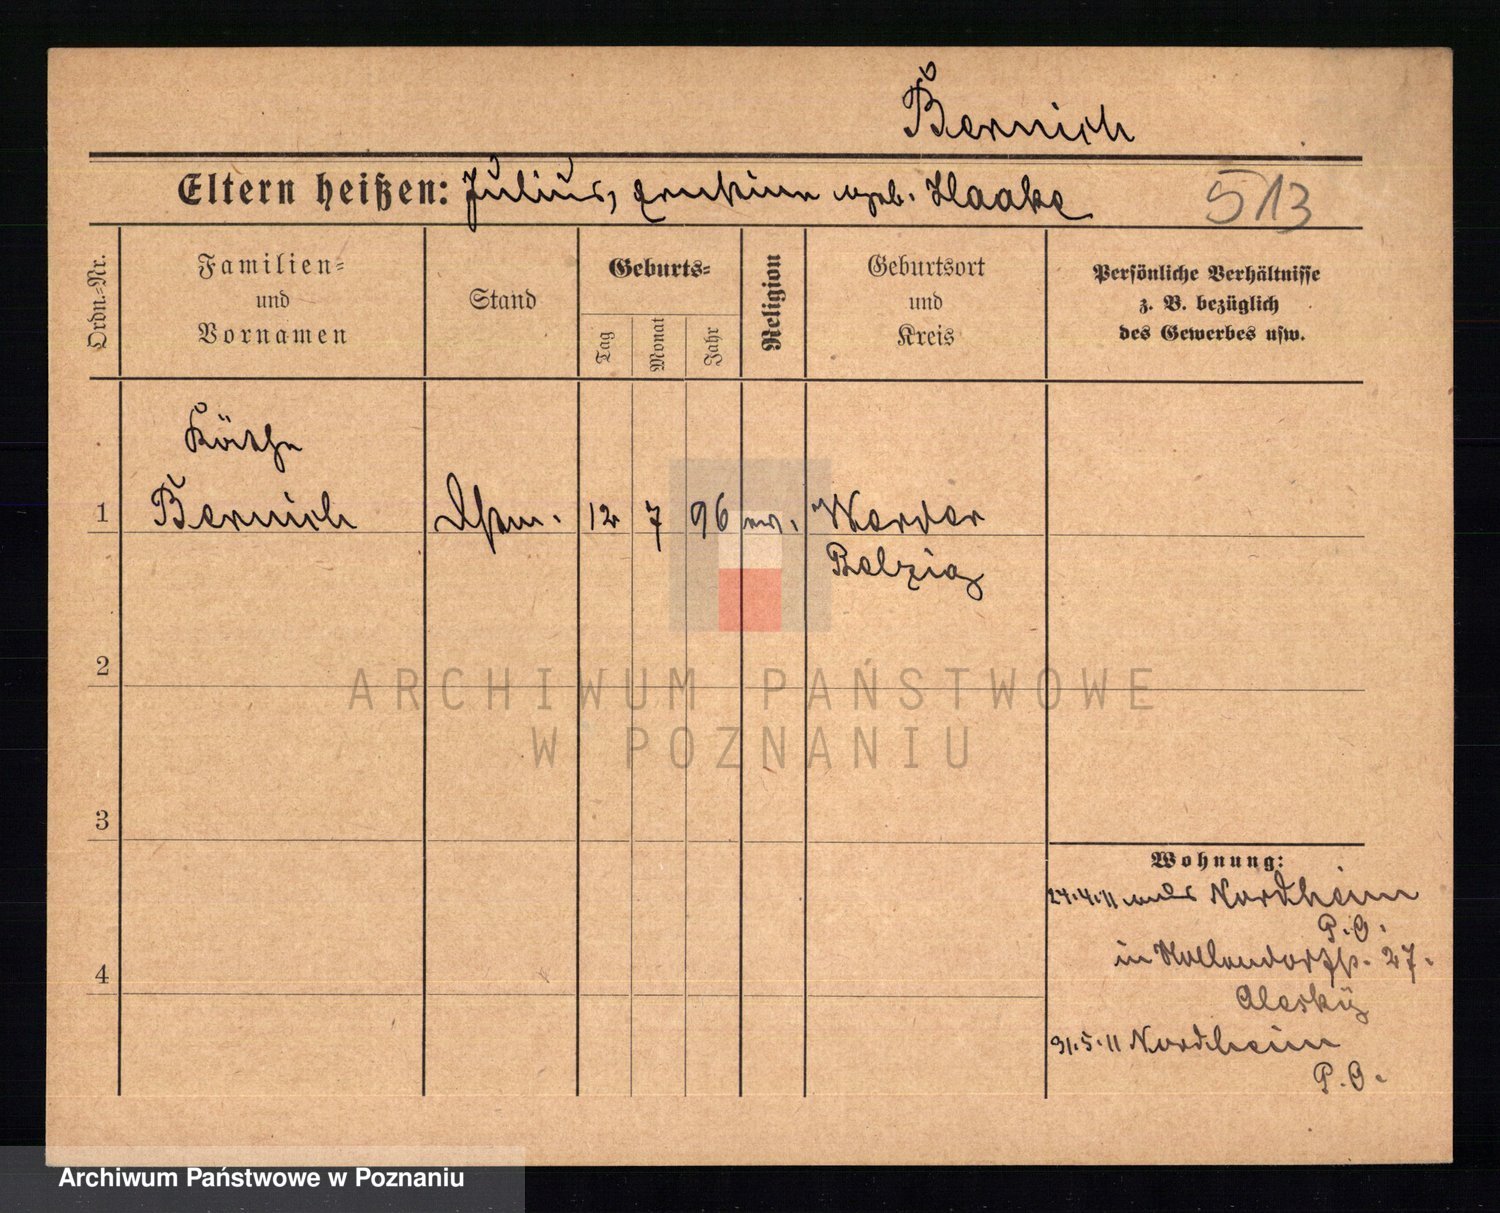 Bernich
Eltern heißen: Julius, Ernestine geb. Haake
513
Ordn.-Nr.
Familien-
und
Vornamen
Stand
Geburts-
Tag
Monat
Jahr
Religion
Geburtsort
und
Kreis
Persönliche Verhältnisse
z. B. bezüglich
des Gewerbes usw.
Käthe
1 Bernich 12 7 96 ev. Werder
Belzig
2
3
4
Wohnung:
24.4.11 Nordheim
P.O.
in 27.
31.5.11 Nordheim
P.O.
ARCHIWUM PAŃSTWOWE
W POZNANIU
Archiwum Państwowe w Poznaniu